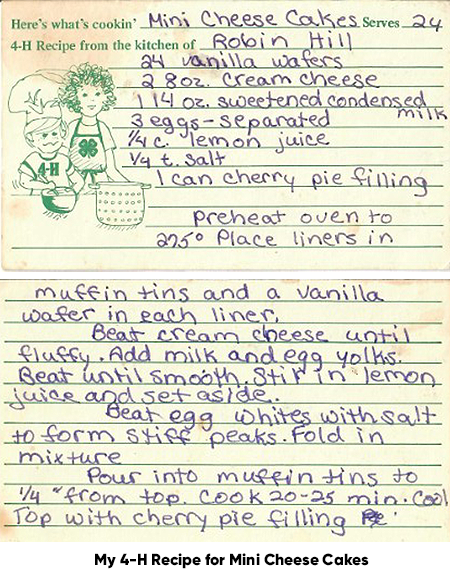 Here's what's cookin' Mini Cheese Cakes Serves 24
4-H Recipe from the kitchen of Robin Hill
24 vanilla wafers
2 8oz. cream cheese
1 14 oz. sweetened condensed milk
3 eggs-separated
1/4 c. lemon juice
1/4 t. salt
1 can cherry pie filling
4-H
preheat oven to
275° Place liners in
muffin tins and a vanilla
wafer in each liner.
Beat cream cheese until
fluffy. Add milk and egg yolks.
Beat until smooth. Stir in lemon
juice and set aside.
Beat egg whites with salt
to form stiff peaks. Fold in
mixture
Pour into muffin tins to
1/4 " from top. Cook 20-25 min. Cool
Top with cherry pie filling
My 4-H Recipe for Mini Cheese Cakes